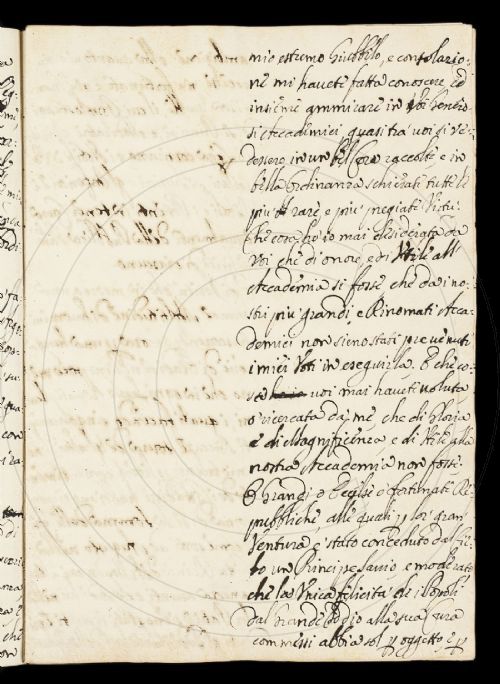 mio estremo Giubbilo, e consolazio=
ne mi havete fatta conoscere, ed
insieme ammirare in Voi
si Accademici, quasi tra voi si ve=
dessero in un bel raccolte, e in
bella Ordinanza schierati tutte le
più rare, e più pregiate Virtu
che cosa ho io mai desiderata da
Voi che di onore, e di Utile all'
Accademia si fosse che da i no=
stri più grandi, e Rinomati Acca=
demici non sieno stati prevenuti
i miei Voti in eseguirla. E che co=
sa voi mai havete voluta
o ricercata da me che di Gloria
e di Magnificenza e di Utile alla
nostra Accademia non fosse.
O Grandi, o Eccelse, o fortunate Re=
pubbliche alle quali p lor gran
Ventura è stato conceduto dal Cie=
lo un Principe Savio, e moderato
che la Unica felicità de i Popoli
dal Grande Iddio alla sua Cura
commessi abbia sol p oggetto, e p